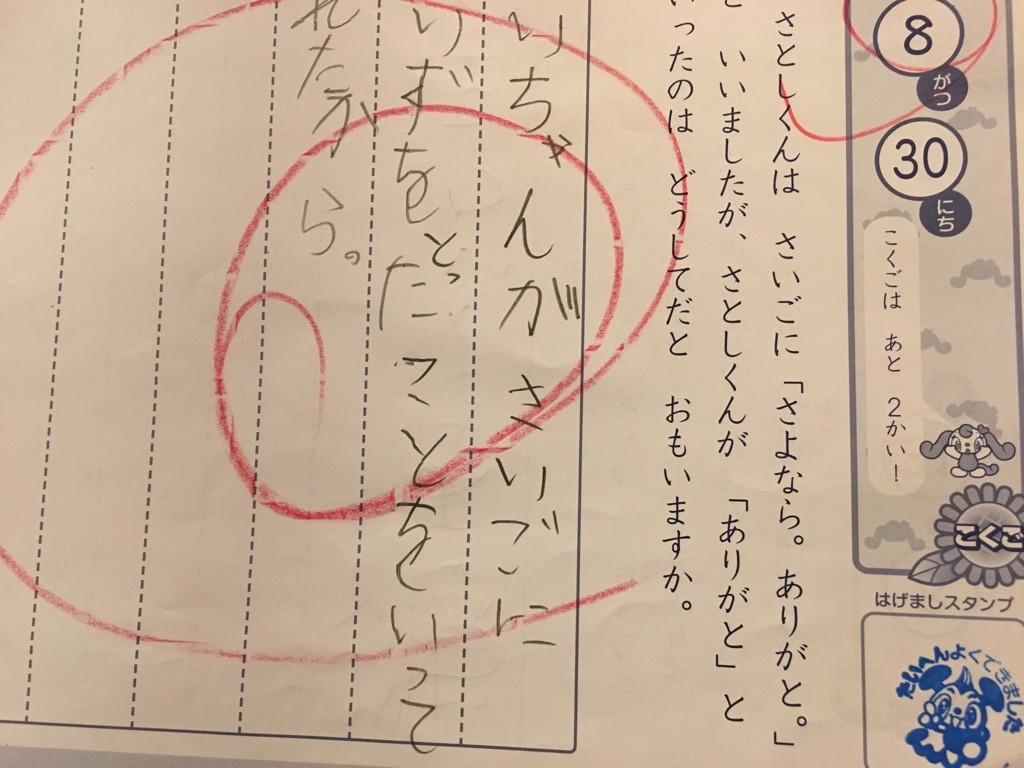 8
がつ
30
にち
こくごは あと 2かい!
こくご
はげましスタンプ
たいへんよくできました
さとしくんは さいごに「さよなら。ありがと。」
と いいましたが、さとしくんが 「ありがと」と
いったのは どうしてだと おもいますか。
いちゃんがさいごに
いずをとったことをいって
れたから。